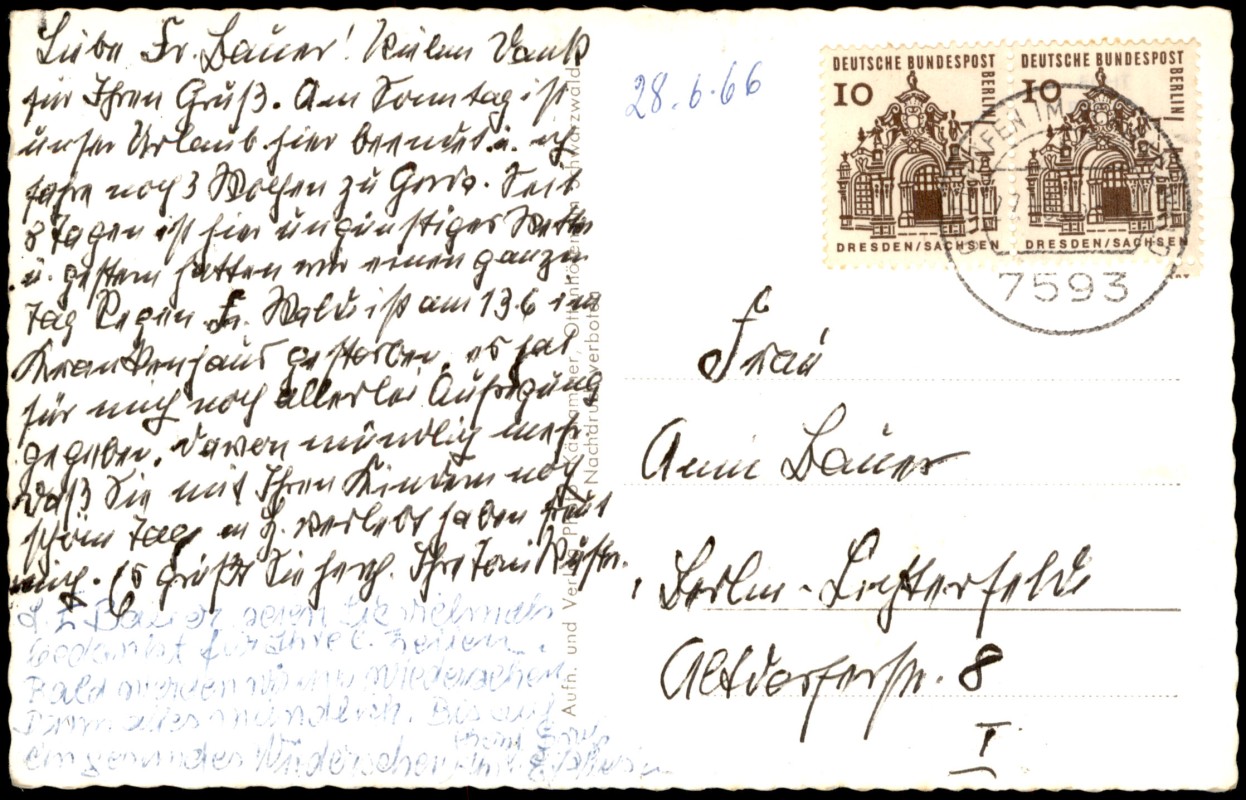 Liebe Fr. Bauer! Vielen Dank
für Ihren Gruß. Am Sonntag ist
unser Urlaub hier beendet u. ich
fahre noch 3 Wochen zu Gerda. Seit
8 Tagen ist hier ungünstiges Wetter
u. gestern hatten wir einen ganzen
Tag Regen. Fr. Wald ist am 13.6 im
Krankenhaus gestorben, es hat
für mich noch allerlei Aufregung
gegeben. Davon mündlich mehr.
Daß Sie mit Ihren Kindern noch
schöne Tage in verlebt haben freut
mich. Es grüßt Sie herzl. Ihre Toni
L. F. Bauer seien Sie vielmals
bedankt für Ihre l. Zeilen.
Bald werden wir uns wiedersehen
Dann alles mündlich. Bis auf
ein gesundes Wiedersehen
Aufn. und Verlag Photo Käshammer, Ottenhöfen, Schwarzwald
Nachdruck verboten
28.6.66
DEUTSCHE BUNDESPOST
BERLIN
10
DRESDEN/SACHSEN
DEUTSCHE BUNDESPOST
BERLIN
10
DRESDEN/SACHSEN
7593
Frau
Anni Bauer
Berlin-Lichterfelde
Altdorferstr. 8
I